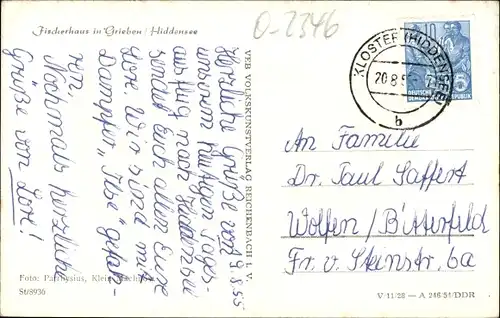 Fischerhaus in Grieben / Hiddensee
0-2346
VEB VOLKSKUNSTVERLAG REICHENBACH I. V.
KLOSTER (HIDDENSEE)
20.8.5
b
10
DEUTSCHE
REPUBLIK
4.8.55
Herzliche Grüße von
unserem heutigen Tages-
ausflug nach Hiddensee
sendet Euch allen Eure
Lore. Wir sind mit
Dampfer „Ilse" gefah-
ren.
Nochmals herzliche
Grüße von Lore!
An Familie
Dr. Paul Saffert
Wolfen / Bitterfeld
Fr. v. Steinstr. 6a
Foto: Parthysius, Klein
St/8936
V 11/28 — A 246/54/DDR